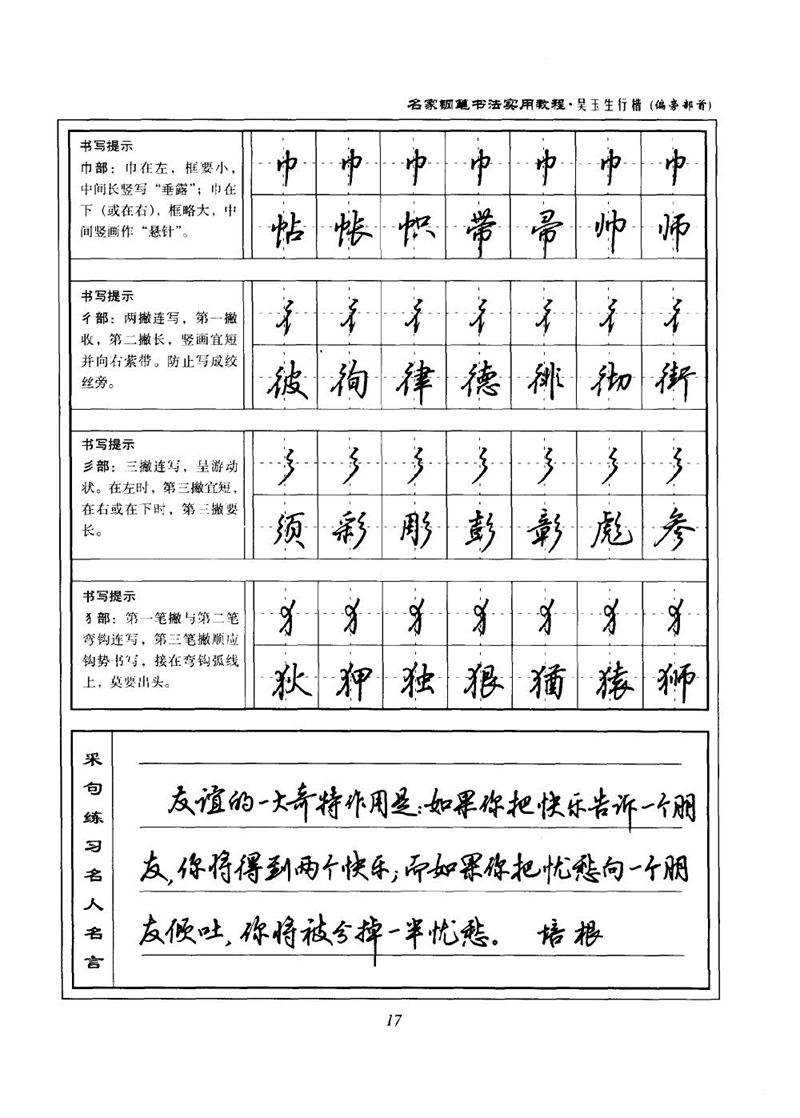 名家钢笔书法实用教程·吴玉生行楷(偏旁部首)
书写提示
巾部：巾在左，框要小，
中间长竖写“垂露”；巾在
下（或在右），框略大，中
间竖画作“悬针”。
巾 巾 巾 巾 巾 巾 巾
帖 帐 帜 带 帚 帅 师
书写提示
彳部：两撇连写，第一撇
收，第二撇长，竖画宜短
并向右萦带。防止写成绞
丝旁。
彳 彳 彳 彳 彳 彳 彳
彼 徇 律 德 徘 彻 街
书写提示
彡部：三撇连写，呈游动
状。在左时，第三撇宜短，
在右或在下时，第三撇要
长。
彡 彡 彡 彡 彡 彡 彡
须 彩 彤 彭 彰 彪 参
书写提示
犭部：第一笔撇与第二笔
弯钩连写，第三笔撇顺应
钩势书写，接在弯钩弧线
上，莫要出头。
犭 犭 犭 犭 犭 犭 犭
狄 狎 独 狠 猶 猿 狮
采句练习名人名言
友谊的一大奇特作用是：如果你把快乐告诉一个朋
友，你将得到两个快乐；而如果你把忧愁向一个朋
友倾吐，你将被分掉一半忧愁。 培根
17